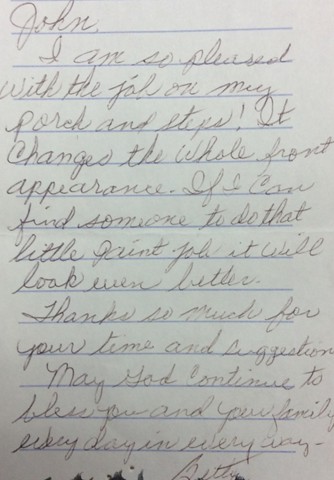 John,
I am so pleased
with the job on my
porch and steps! It
changes the whole front
appearance. If I can
find someone to do that
little paint job it will
look even better.
Thanks so much for
your time and suggestion
May God continue to
bless you and your family
every day in every way-
Betty